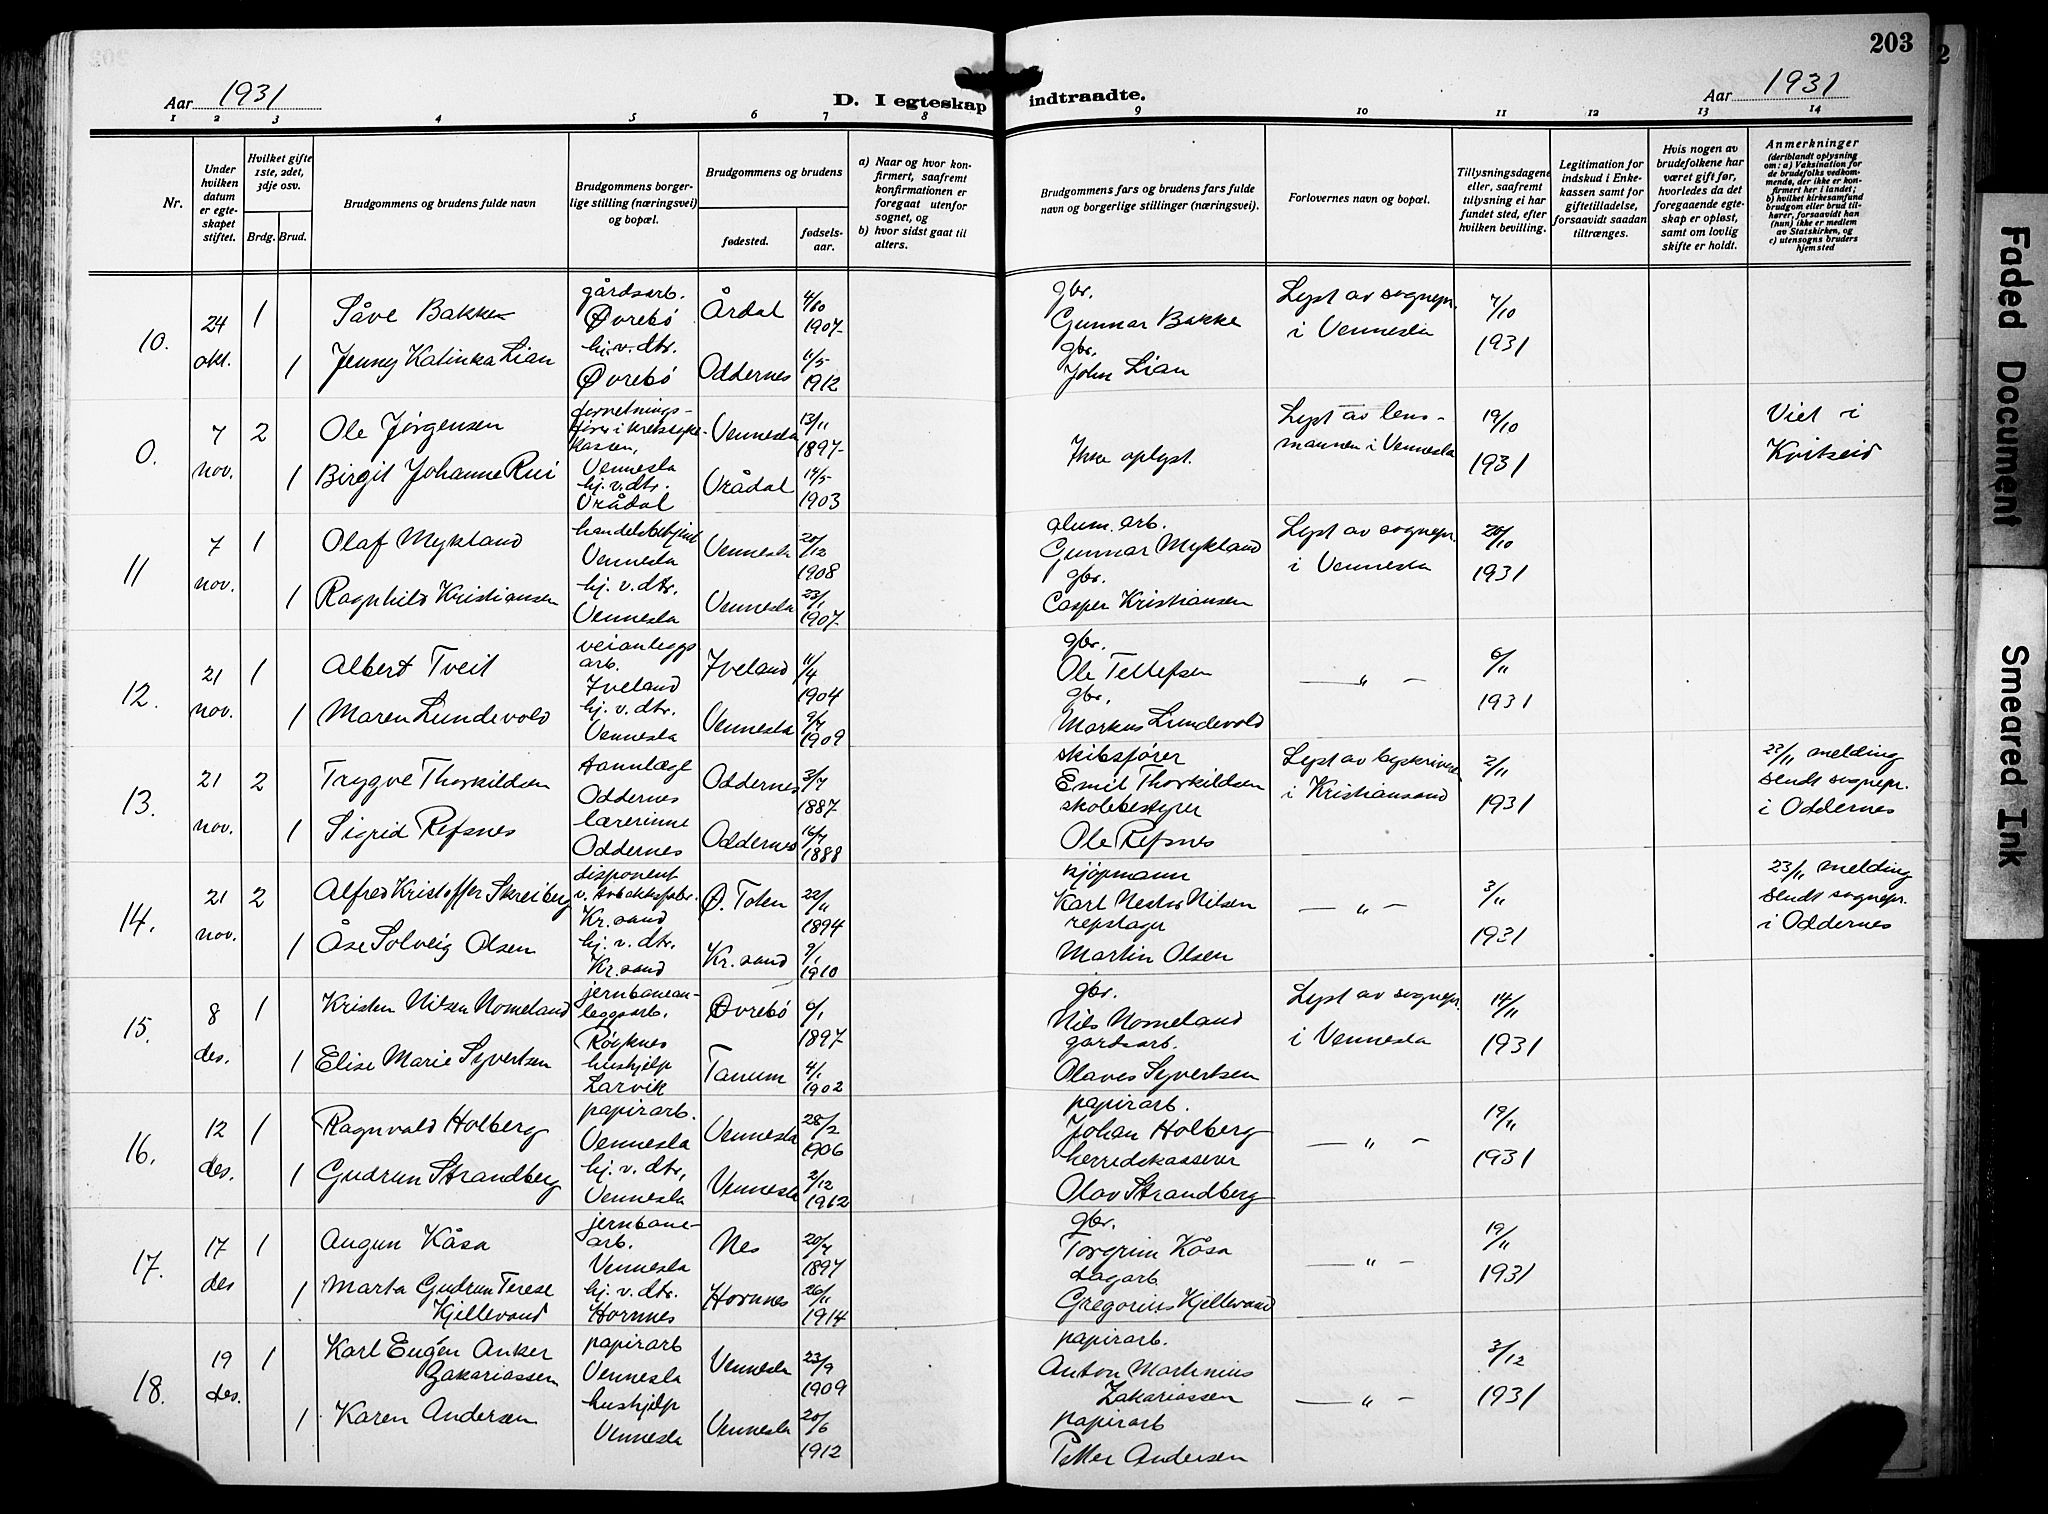 203
Aar 1931
D. I egteskap indtraadte.
Aar 1931
1 2 3 4 5 6 7 8 9 10 11 12 13 14
Nr.
Under hvilken datum er egteskapet stiftet.
Hvilket gifte 1ste, 2det, 3dje osv.
Brdg. Brud.
Brudgommens og brudens fulde navn
Brudgommens borgerlige stilling (næringsvei) og bopæl.
Brudgommens og brudens
fødested.
fødselsaar.
a) Naar og hvor konfirmert, saafremt konfirmationen er foregaat utenfor sognet, og
b) hvor sidst gaat til alters.
Brudgommens fars og brudens fars fulde navn og borgerlige stillinger (næringsvei).
Forlovernes navn og bopæl.
Tillysningsdagene eller, saafremt tillysning ei har fundet sted, efter hvilken bevilling.
Legitimation for indskud i Enkekassen samt for giftetilladelse, forsaavidt saadan tiltrænges.
Hvis nogen av brudefolkene har været gift før, hvorledes da det foregaaende egteskap er opløst, samt om lovlig skifte er holdt.
Anmerkninger
(deriblandt oplysning om: a) Vaksination for de brudefolks vedkommende, der ikke er konfirmert her i landet; b) hvilket kirkesamfund brudgom eller brud tilhører, forsaavidt han (hun) ikke er medlem av Statskirken, og c) utensogns bruders hjemsted
10. 24 okt. 1 Såve Bakken gårdsarb. Øvrebö Årdal 4/10 1907 gbr. Gunnar Bakke Lyst av sognepr. i Vennesla 7/10 1931
1 Jenny Katinka Lian hj. v. dtr. Øvrebö Oddernes 11/5 1912 gbr. John Lian
0. 7 nov. 2 Ole Jørgensen Vennesla Vennesla 13/11 1897 Ikke oplyst. Lyst av lensmannen i Vennesla 19/10 1931 Viet i Kvitseid
1 Birgit Johanne Rui hj. v. dtr. Vrådal Vrådal 1903
11 7 nov. 1 Olaf Mykland handelsbetjent Vennesla Vennesla 20/12 1908 alum. arb. Gunnar Mykland Lyst av sognepr. i Vennesla 20/10 1931
1 Ragnhild Kristiansen hj. v. dtr. Vennesla Vennesla 23/1 1907 gbr. Casper Kristiansen
12. 21 nov. 1 Albert Tveit veianleggsarb. Iveland Iveland 11/4 1904 gbr. Ole Tellefsen — " — 6/11 1931
1 Maren Lundevold hj. v. dtr. Vennesla Vennesla 9/7 1909 gbr. Markus Lundevold
13. 21 nov. 2 Trygve Thorkildsen tannlæge Oddernes Oddernes 3/7 1887 skibsfører Emil Thorkildsen Lyst av byskriveren i Kristiansand 2/11 1931 23/11 melding sendt sognepr. i Oddernes
1 Sigrid Refsnes lærerinne Oddernes Oddernes 16/7 1888 skolebestyrer Ole Refsnes
14. 21 nov. 2 Alfred Kristoffer Skreiberg disponent v. tobakksfabr. Kr.sand Ø. Toten 22/11 1894 kjøpmann Karl Nestor Nilsen — " — 3/11 1931 23/11 melding sendt sognepr. i Oddernes
1 Åse Solveig Olsen hj. v. dtr. Kr.sand Kr.sand 9/1 1910 repslager Martin Olsen
15. 8 des. 1 Kristen Nilsen Nomeland jernbaneanleggsarb. Røyknes Øvrebö 6/1 1897 gbr. Nils Nomeland Lyst av sognepr. i Vennesla 14/11 1931
1 Elise Marie Syvertsen hushjelp Larvik Tanum 4/1 1902 gårdsarb. Olaves Syvertsen
16. 12 des. 1 Ragnvald Holberg papirarb. Vennesla Vennesla 28/2 1906 papirarb. Johan Holberg — " — 19/11 1931
1 Gudrun Strandberg hj. v. dtr. Vennesla Vennesla 2/12 1912 herredskasserer Olav Strandberg
17. 17 des 1 Augun Kåsa jernbanearb. Vennesla Nes 20/7 1897 gbr. Torgrim Kåsa — " — 19/11 1931
1 Marta Gudrun Terese Kjellevand hj. v. dtr. Hornnes Hornnes 26/11 1914 dagarb. Gregorius Kjellevand
18. 19 des. 1 Karl Eugén Anker Zakariassen papirarb Vennesla Vennesla 23/9 1909 papirarb. Anton Martinius Zakariassen — " — 3/12 1931
1 Karen Andersen hushjelp Vennesla Vennesla 20/6 1912 papirarb Petter Andersen
Faded Document
Smeared Ink